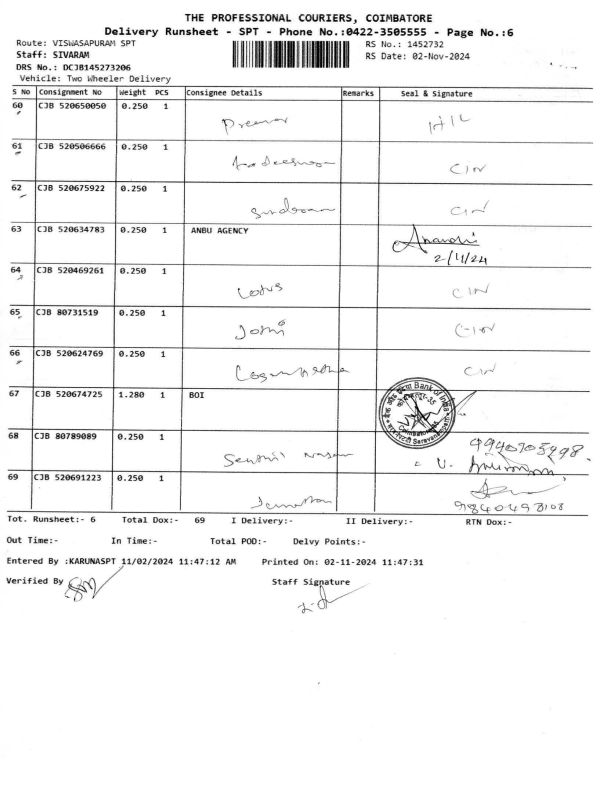 THE PROFESSIONAL COURIERS, COIMBATORE
Delivery Runsheet - SPT - Phone No.:0422-3505555 - Page No.:6
Route: VISWASAPURAM SPT RS No.: 1452732
Staff: SIVARAM RS Date: 02-Nov-2024
DRS No.: DCJB145273206
Vehicle: Two Wheeler Delivery
S No Consignment No Weight PCS Consignee Details Remarks Seal & Signature
60 CJB 520650050 0.250 1
61 CJB 520506666 0.250 1
CIN
62 CJB 520675922 0.250 1
CIN
63 CJB 520634783 0.250 1 ANBU AGENCY
2/11/24
64 CJB 520469261 0.250 1
Lotus CIN
65 CJB 80731519 0.250 1
CIN
66 CJB 520624769 0.250 1
CIN
67 CJB 520674725 1.280 1 BOI
Bank of India
68 CJB 80789089 0.250 1
Senthil
69 CJB 520691223 0.250 1
Tot. Runsheet:- 6 Total Dox:- 69 I Delivery:- II Delivery:- RTN Dox:-
Out Time:- In Time:- Total POD:- Delvy Points:-
Entered By :KARUNASPT 11/02/2024 11:47:12 AM Printed On: 02-11-2024 11:47:31
Verified By Staff Signature